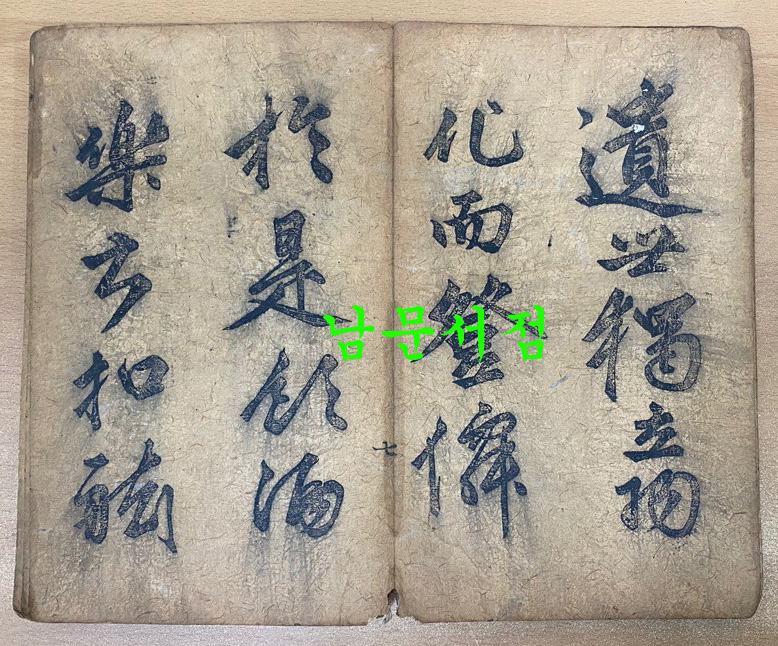 遺世獨立羽
化而登僊
七
於是飲酒
樂甚扣舷
남문서점